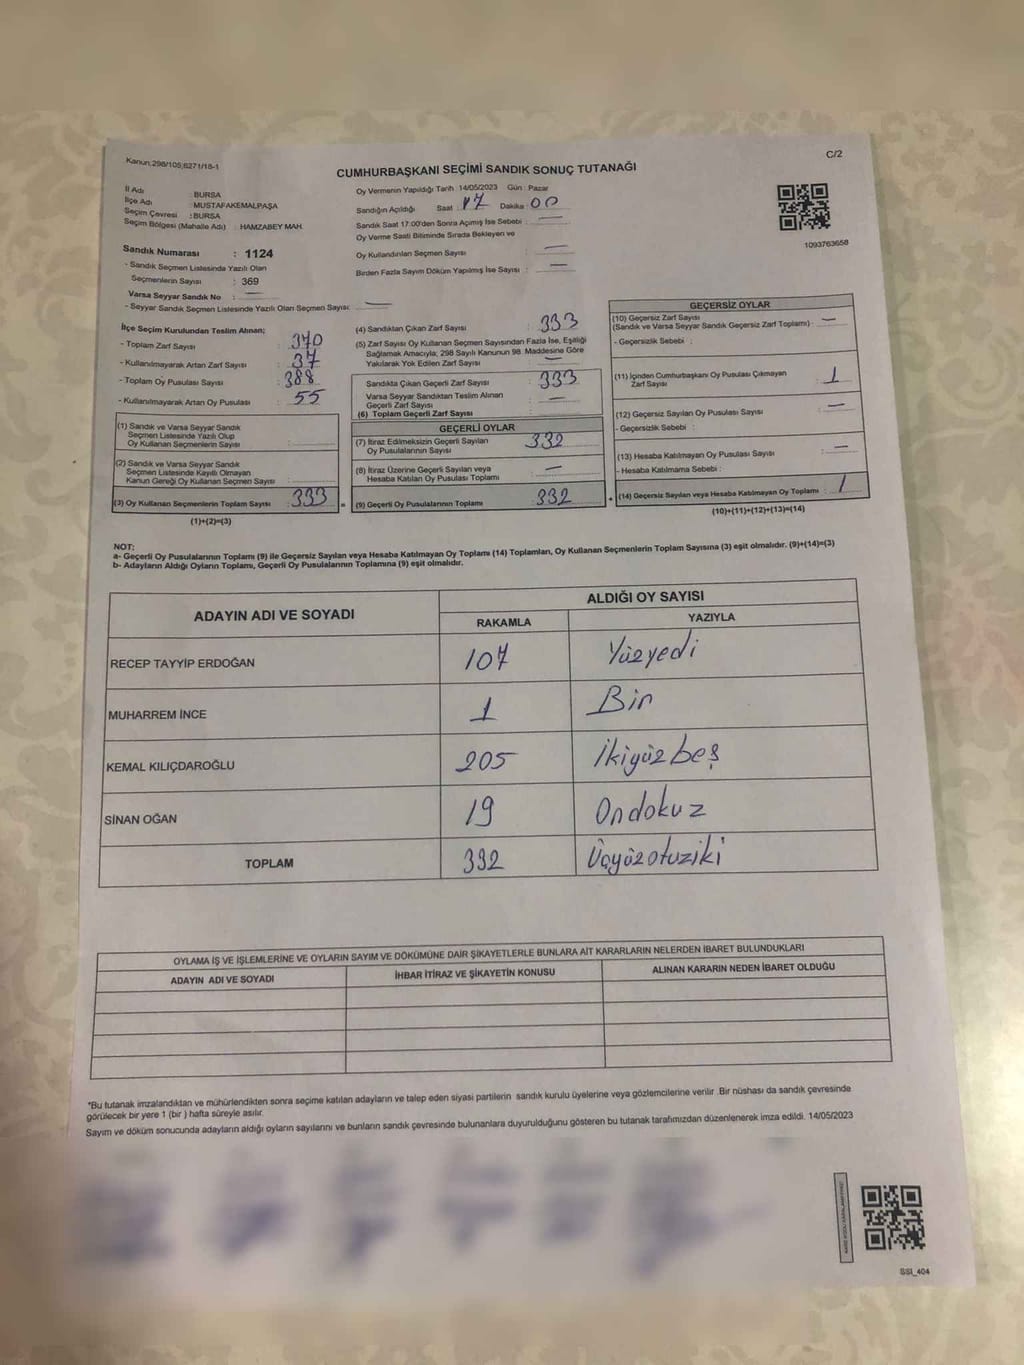 Kanun;298/105;6271/18-1
C/2
CUMHURBAŞKANI SEÇİMİ SANDIK SONUÇ TUTANAĞI
İl Adı : BURSA
İlçe Adı : MUSTAFAKEMALPAŞA
Seçim Çevresi : BURSA
Seçim Bölgesi (Mahalle Adı) : HAMZABEY MAH.
Sandık Numarası : 1124
- Sandık Seçmen Listesinde Yazılı Olan
Seçmenlerin Sayısı : 369
Varsa Seyyar Sandık No : —
- Seyyar Sandık Seçmen Listesinde Yazılı Olan Seçmen Sayısı: —
Oy Vermenin Yapıldığı Tarih :14/05/2023 Gün : Pazar
Sandığın Açıldığı Saat : 17 Dakika : 00
Sandık Saat 17:00'den Sonra Açımış İse Sebebi : —
Oy Verme Saati Bitiminde Sırada Bekleyen ve
Oy Kullandırılan Seçmen Sayısı : —
Birden Fazla Sayım Döküm Yapılmış İse Sayısı : —
1093763658
İlçe Seçim Kurulundan Teslim Alınan;
- Toplam Zarf Sayısı : 370
- Kullanılmayarak Artan Zarf Sayısı : 37
- Toplam Oy Pusulası Sayısı : 388
- Kullanılmayarak Artan Oy Pusulası : 55
(1) Sandık ve Varsa Seyyar Sandık
Seçmen Listesinde Yazılı Olup
Oy Kullanan Seçmenlerin Sayısı :
(2) Sandık ve Varsa Seyyar Sandık
Seçmen Listesinde Kayıtlı Olmayan
Kanun Gereği Oy Kullanan Seçmen Sayısı :
(3) Oy Kullanan Seçmenlerin Toplam Sayısı : 333
(1)+(2)=(3)
(4) Sandıktan Çıkan Zarf Sayısı : 333
(5) Zarf Sayısı Oy Kullanan Seçmen Sayısından Fazla İse, Eşitliği
Sağlamak Amacıyla; 298 Sayılı Kanunun 98. Maddesine Göre
Yakılarak Yok Edilen Zarf Sayısı : —
Sandıkta Çıkan Geçerli Zarf Sayısı : 333
Varsa Seyyar Sandıktan Teslim Alınan
Geçerli Zarf Sayısı : —
(6) Toplam Geçerli Zarf Sayısı :
GEÇERLİ OYLAR
(7) İtiraz Edilmeksizin Geçerli Sayılan
Oy Pusulalarının Sayısı : 332
(8) İtiraz Üzerine Geçerli Sayılan veya
Hesaba Katılan Oy Pusulası Toplamı : —
= (9) Geçerli Oy Pusulalarının Toplamı : 332
GEÇERSİZ OYLAR
(10) Geçersiz Zarf Sayısı
(Sandık ve Varsa Seyyar Sandık Geçersiz Zarf Toplamı) : —
- Geçersizlik Sebebi :
(11) İçinden Cumhurbaşkanı Oy Pusulası Çıkmayan
Zarf Sayısı : 1
(12) Geçersiz Sayılan Oy Pusulası Sayısı : —
- Geçersizlik Sebebi :
(13) Hesaba Katılmayan Oy Pusulası Sayısı : —
- Hesaba Katılmama Sebebi :
+ (14) Geçersiz Sayılan veya Hesaba Katılmayan Oy Toplamı : 1
(10)+(11)+(12)+(13)=(14)
NOT:
a- Geçerli Oy Pusulalarının Toplamı (9) ile Geçersiz Sayılan veya Hesaba Katılmayan Oy Toplamı (14) Toplamları, Oy Kullanan Seçmenlerin Toplam Sayısına (3) eşit olmalıdır. (9)+(14)=(3)
b- Adayların Aldığı Oyların Toplamı, Geçerli Oy Pusulalarının Toplamına (9) eşit olmalıdır.
ADAYIN ADI VE SOYADI
ALDIĞI OY SAYISI
RAKAMLA YAZIYLA
RECEP TAYYİP ERDOĞAN 107 Yüzyedi
MUHARREM İNCE 1 Bir
KEMAL KILIÇDAROĞLU 205 İkiyüzbeş
SİNAN OĞAN 19 Ondokuz
TOPLAM 332 Üçyüzotuziki
OYLAMA İŞ VE İŞLEMLERİNE VE OYLARIN SAYIM VE DÖKÜMÜNE DAİR ŞİKAYETLERLE BUNLARA AİT KARARLARIN NELERDEN İBARET BULUNDUKLARI
ADAYIN ADI VE SOYADI İHBAR İTİRAZ VE ŞİKAYETİN KONUSU ALINAN KARARIN NEDEN İBARET OLDUĞU
*Bu tutanak imzalandıktan ve mühürlendikten sonra seçime katılan adayların ve talep eden siyasi partilerin sandık kurulu üyelerine veya gözlemcilerine verilir .Bir nüshası da sandık çevresinde
görülecek bir yere 1 (bir ) hafta süreyle asılır.
Sayım ve döküm sonucunda adayların aldığı oyların sayılarını ve bunların sandık çevresinde bulunanlara duyurulduğunu gösteren bu tutanak tarafımızdan düzenlenerek imza edildi. 14/05/2023
SSI_404